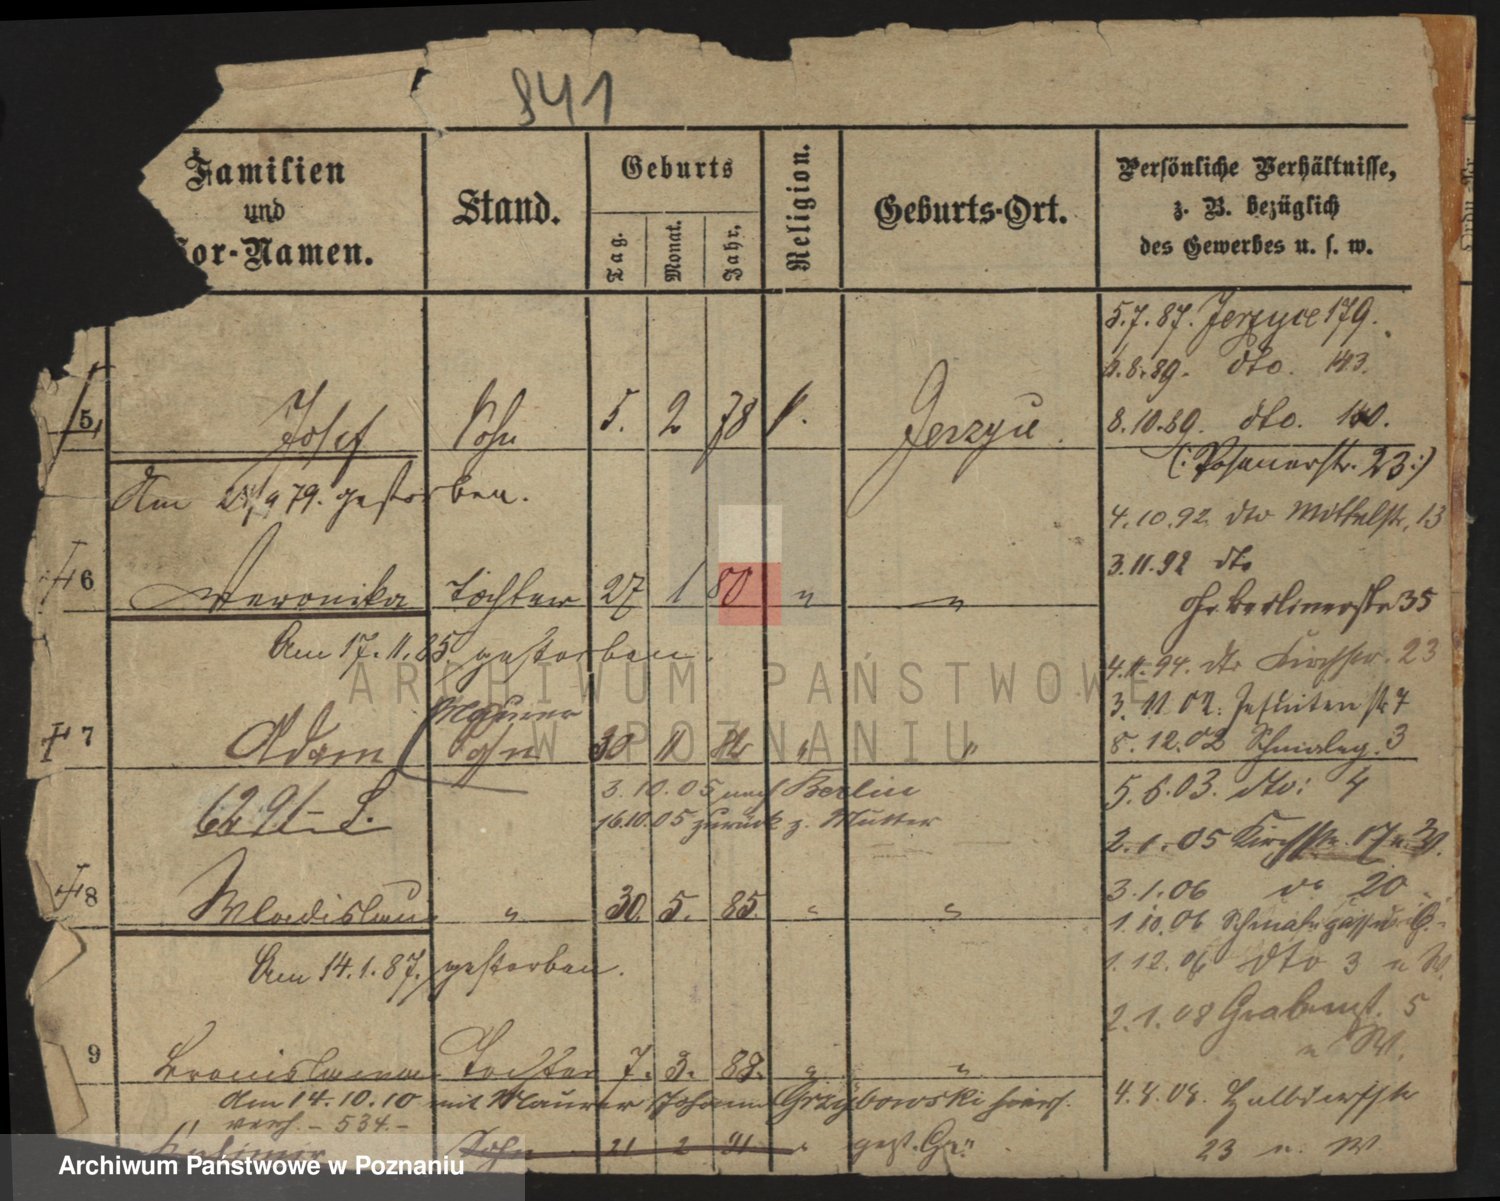 841
Familien
und
Vor-Namen.
Stand.
Geburts
Tag.
Monat.
Jahr.
Religion.
Geburts-Ort.
Persönliche Verhältnisse,
z. B. bezüglich
des Gewerbes u. s. w.
5.7.87. Jerzyce 179.
4.8.89. dto. 143.
8.10.89. dto. 140.
(: Posenerstr. 23 :)
5, Josef Sohn 5. 2 78 k. Jerzyce.
Am 79. gestorben.
4.10.92 dto Mittelstr. 13
3.11.92 dto
Gr. Berlinerstr 35
6 Veronika Tochter 27 1 80 " "
Am 17.11.85 gestorben.
4.11.94. dto Kirchstr. 23
3.11.02. Jesuitenstr 4
7 Adam Maurer
Sohn 30 11 82 " "
8.12.02 Schmaleg. 3
3.10.05 nach Berlin
16.10.05 zurück z. Mutter
5.6.03. dto: 4
2.1.05 Kirchstr. 17 u. W.
3.1.06 do 20
8 Wladislaus " 30. 5. 85. " "
1.10.06 Schmalegasse
Am 14.1.87. gestorben.
1.12.06 dto 3 u W.
2.1.08 Grabenst. 5
u W.
9 Bronislawa Tochter 7. 3. 88. " "
Am 14.10.10 mit Maurer Johann Grzybowski hier
verh. - 534.-
4.8.08. Halbdorfstr
23 u. W
Kasimir Sohn 21 2 91 "
ARCHIWUM PAŃSTWOWE
W POZNANIU
Archiwum Państwowe w Poznaniu